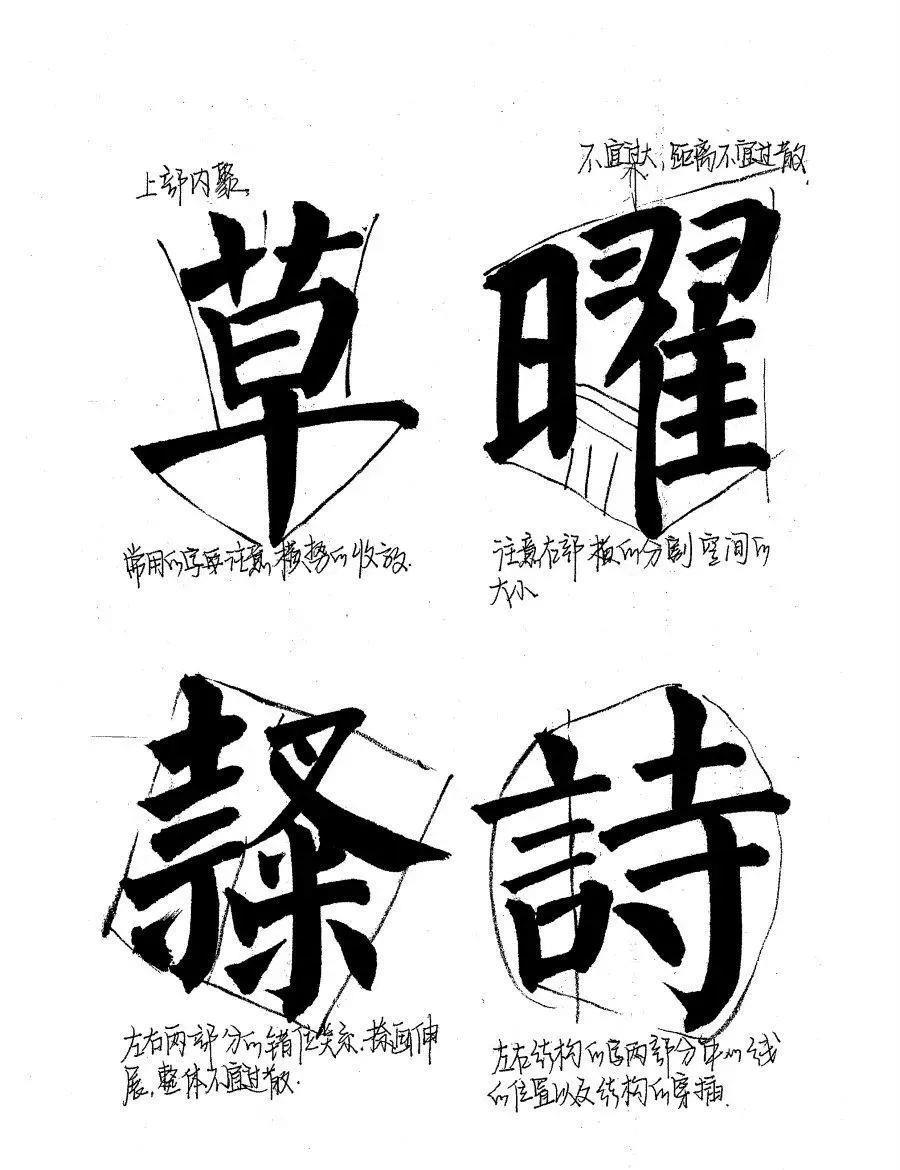 上部内聚。
草
常用的字要注意横势的收放.
不宜过大,距离不宜过散.
曜
注意右部横的分割空间的
大小.
左右两部分的错位关系.捺画伸
展,整体不宜过散.
詩
左右结构的字两部分中心线
的位置以及结构的穿插.